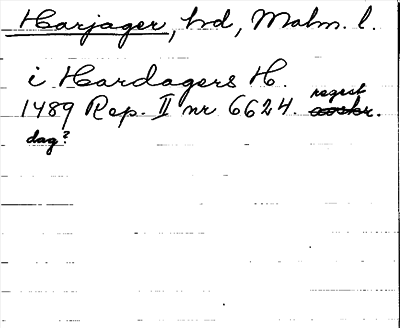 Harjager, hd, Malm. l.
i Hardagers H.
1489 Rep. II nr 6624. regest avskr.
dag?